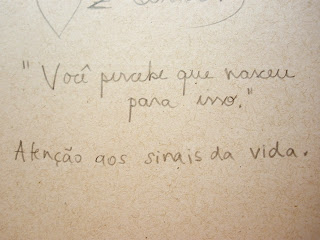 "Você percebe que nasceu
para isso."
Atenção aos sinais da vida.